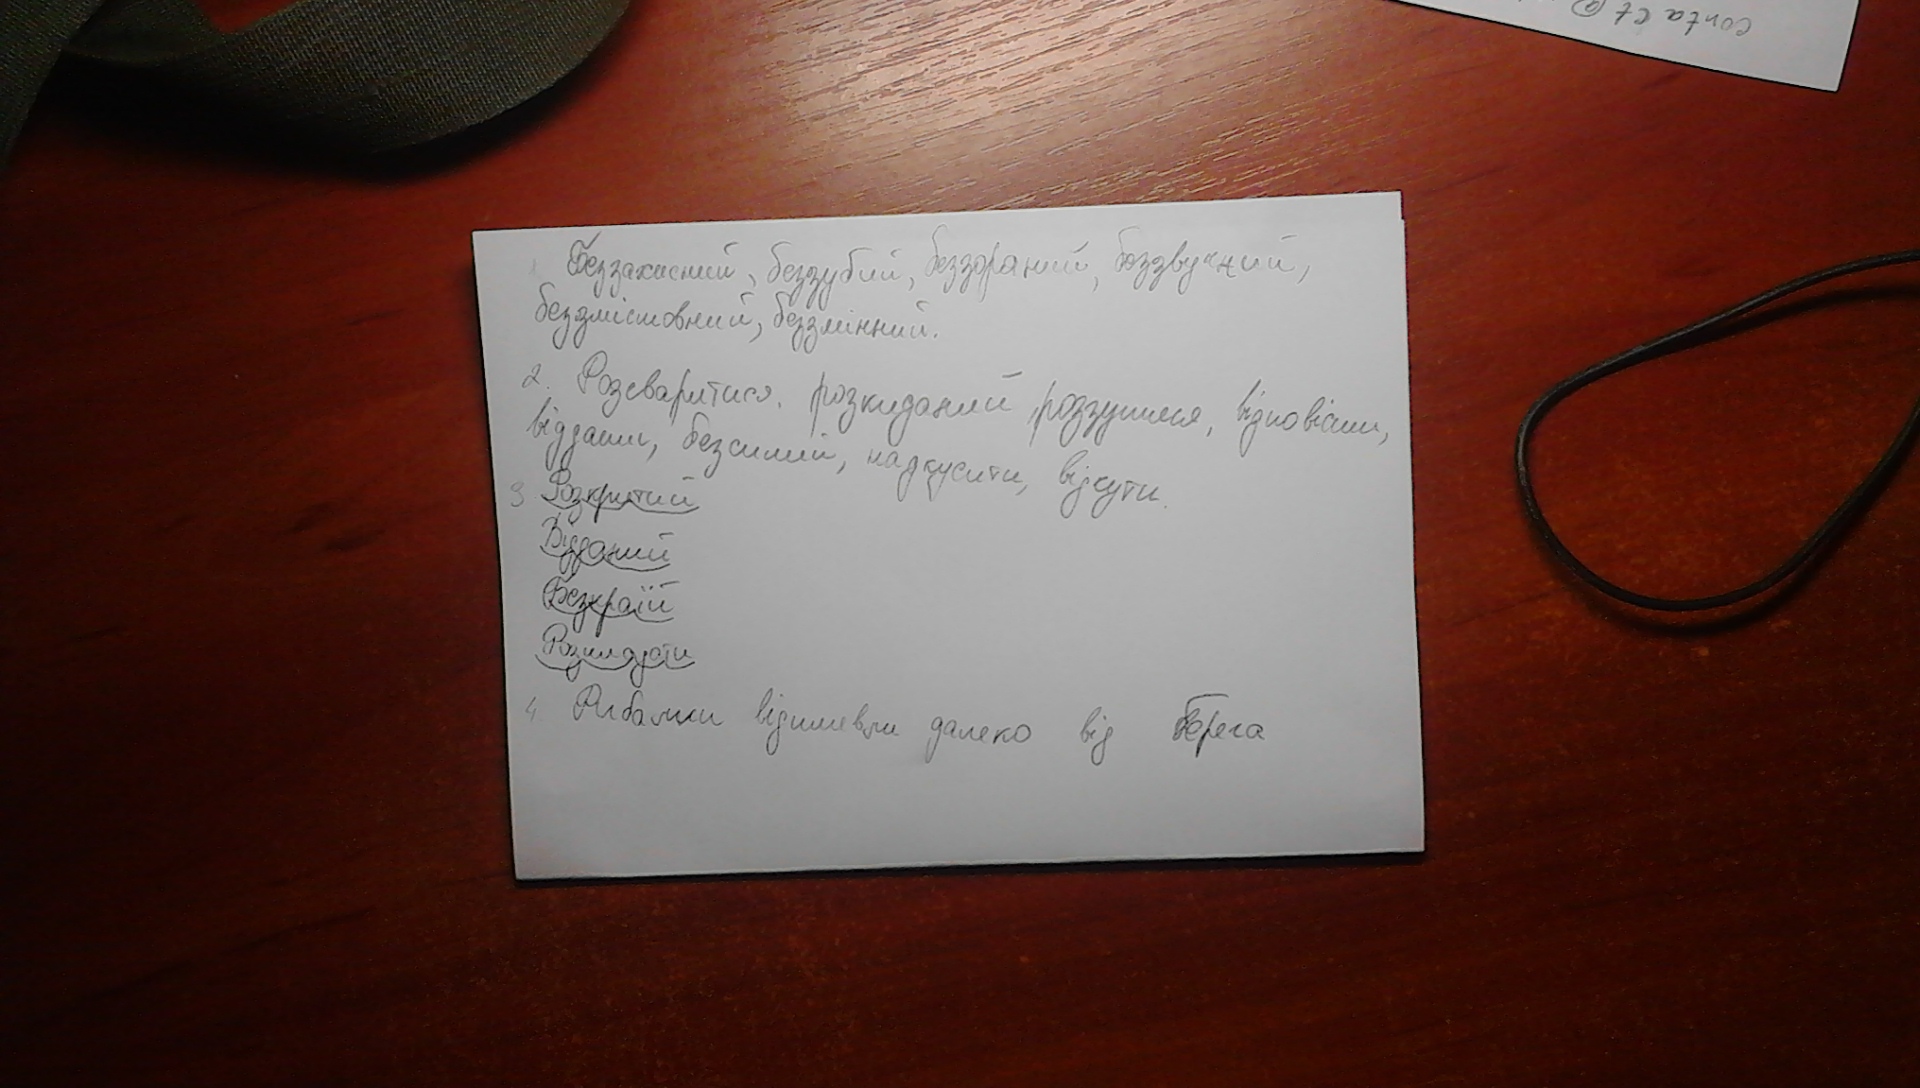 conta ct @
1 Беззахисний, беззубий, беззораний, беззвучний,
беззмістовний, беззмінний.
2. Розсваритися. розкиданий, роззутися, відповісти,
віддати, безсилий, надкусити, відчути.
3 Розкритий
Відданий
Безкраїй
Розпладсти
4 Рибалки відпливли далеко від берега